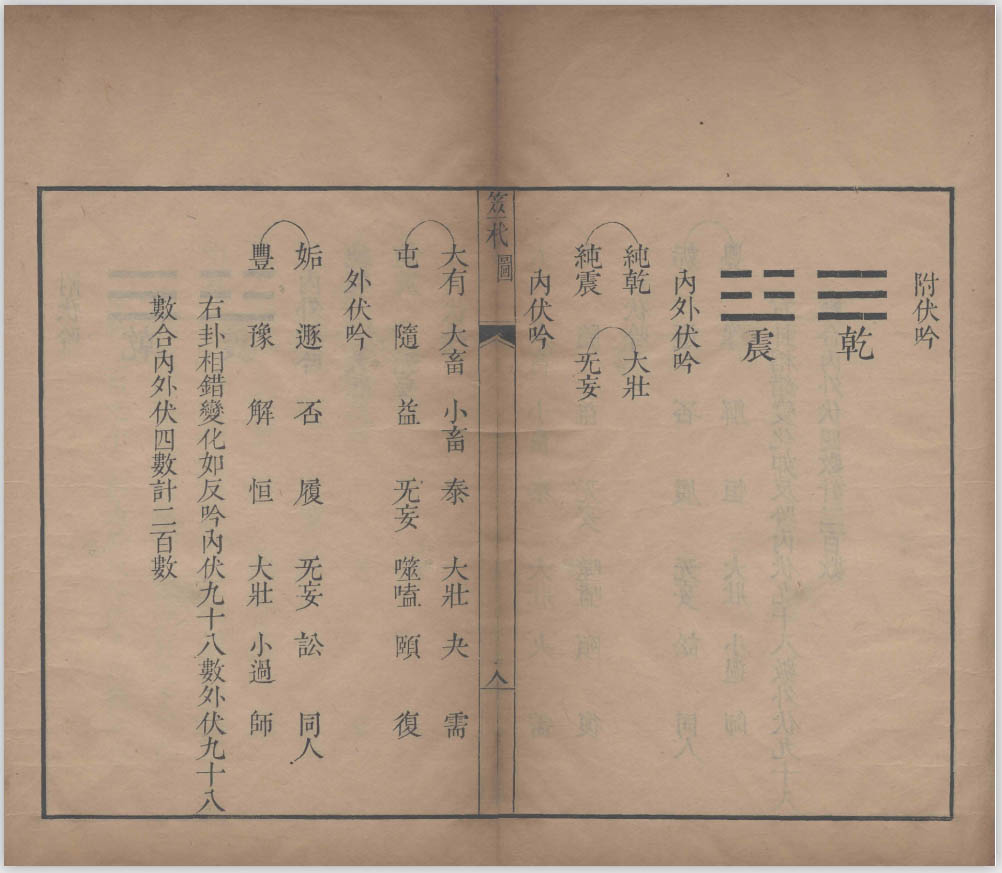 附伏吟
乾
震
內外伏吟
純乾 大壯
純震 旡妄
內伏吟
圖
大有 大畜 小畜 泰 大壯 夬 需
屯 隨 益 旡妄 噬嗑 頤 復
外伏吟
姤 遯 否 履 旡妄 訟 同人
豐 豫 解 恒 大壯 小過 師
右卦相錯變化如反吟內伏九十八數外伏九十八
數合內外伏四數計二百數